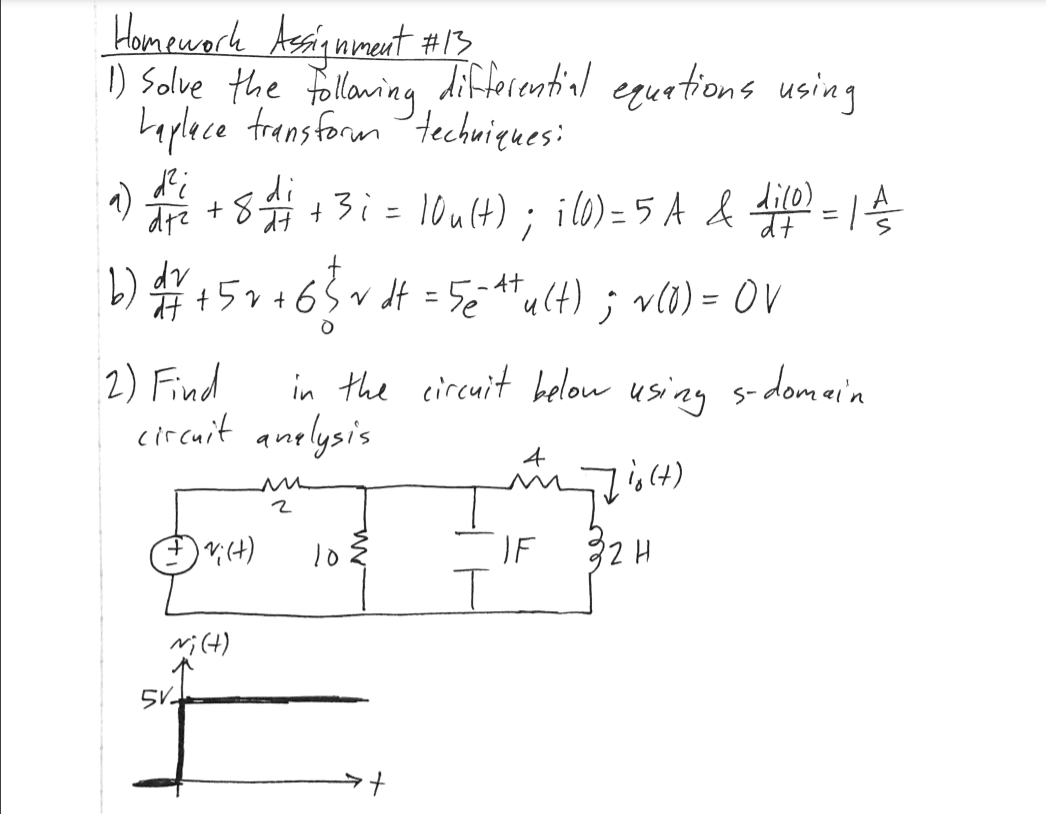 Homework Assignment #13
1) Solve the following differential equations using
Laplace transform techniques:
a) d²i/dt² + 8 di/dt + 3i = 10u(t) ; i(0) = 5 A & di(0)/dt = 1 A/s
b) dv/dt + 5v + 6 ∫₀ᵗ v dt = 5e^-4t u(t) ; v(0) = 0V
2) Find in the circuit below using s-domain
circuit analysis
4
i₀(t)
2
+
-
vᵢ(t)
10
1F
2 H
vᵢ(t)
5V
t